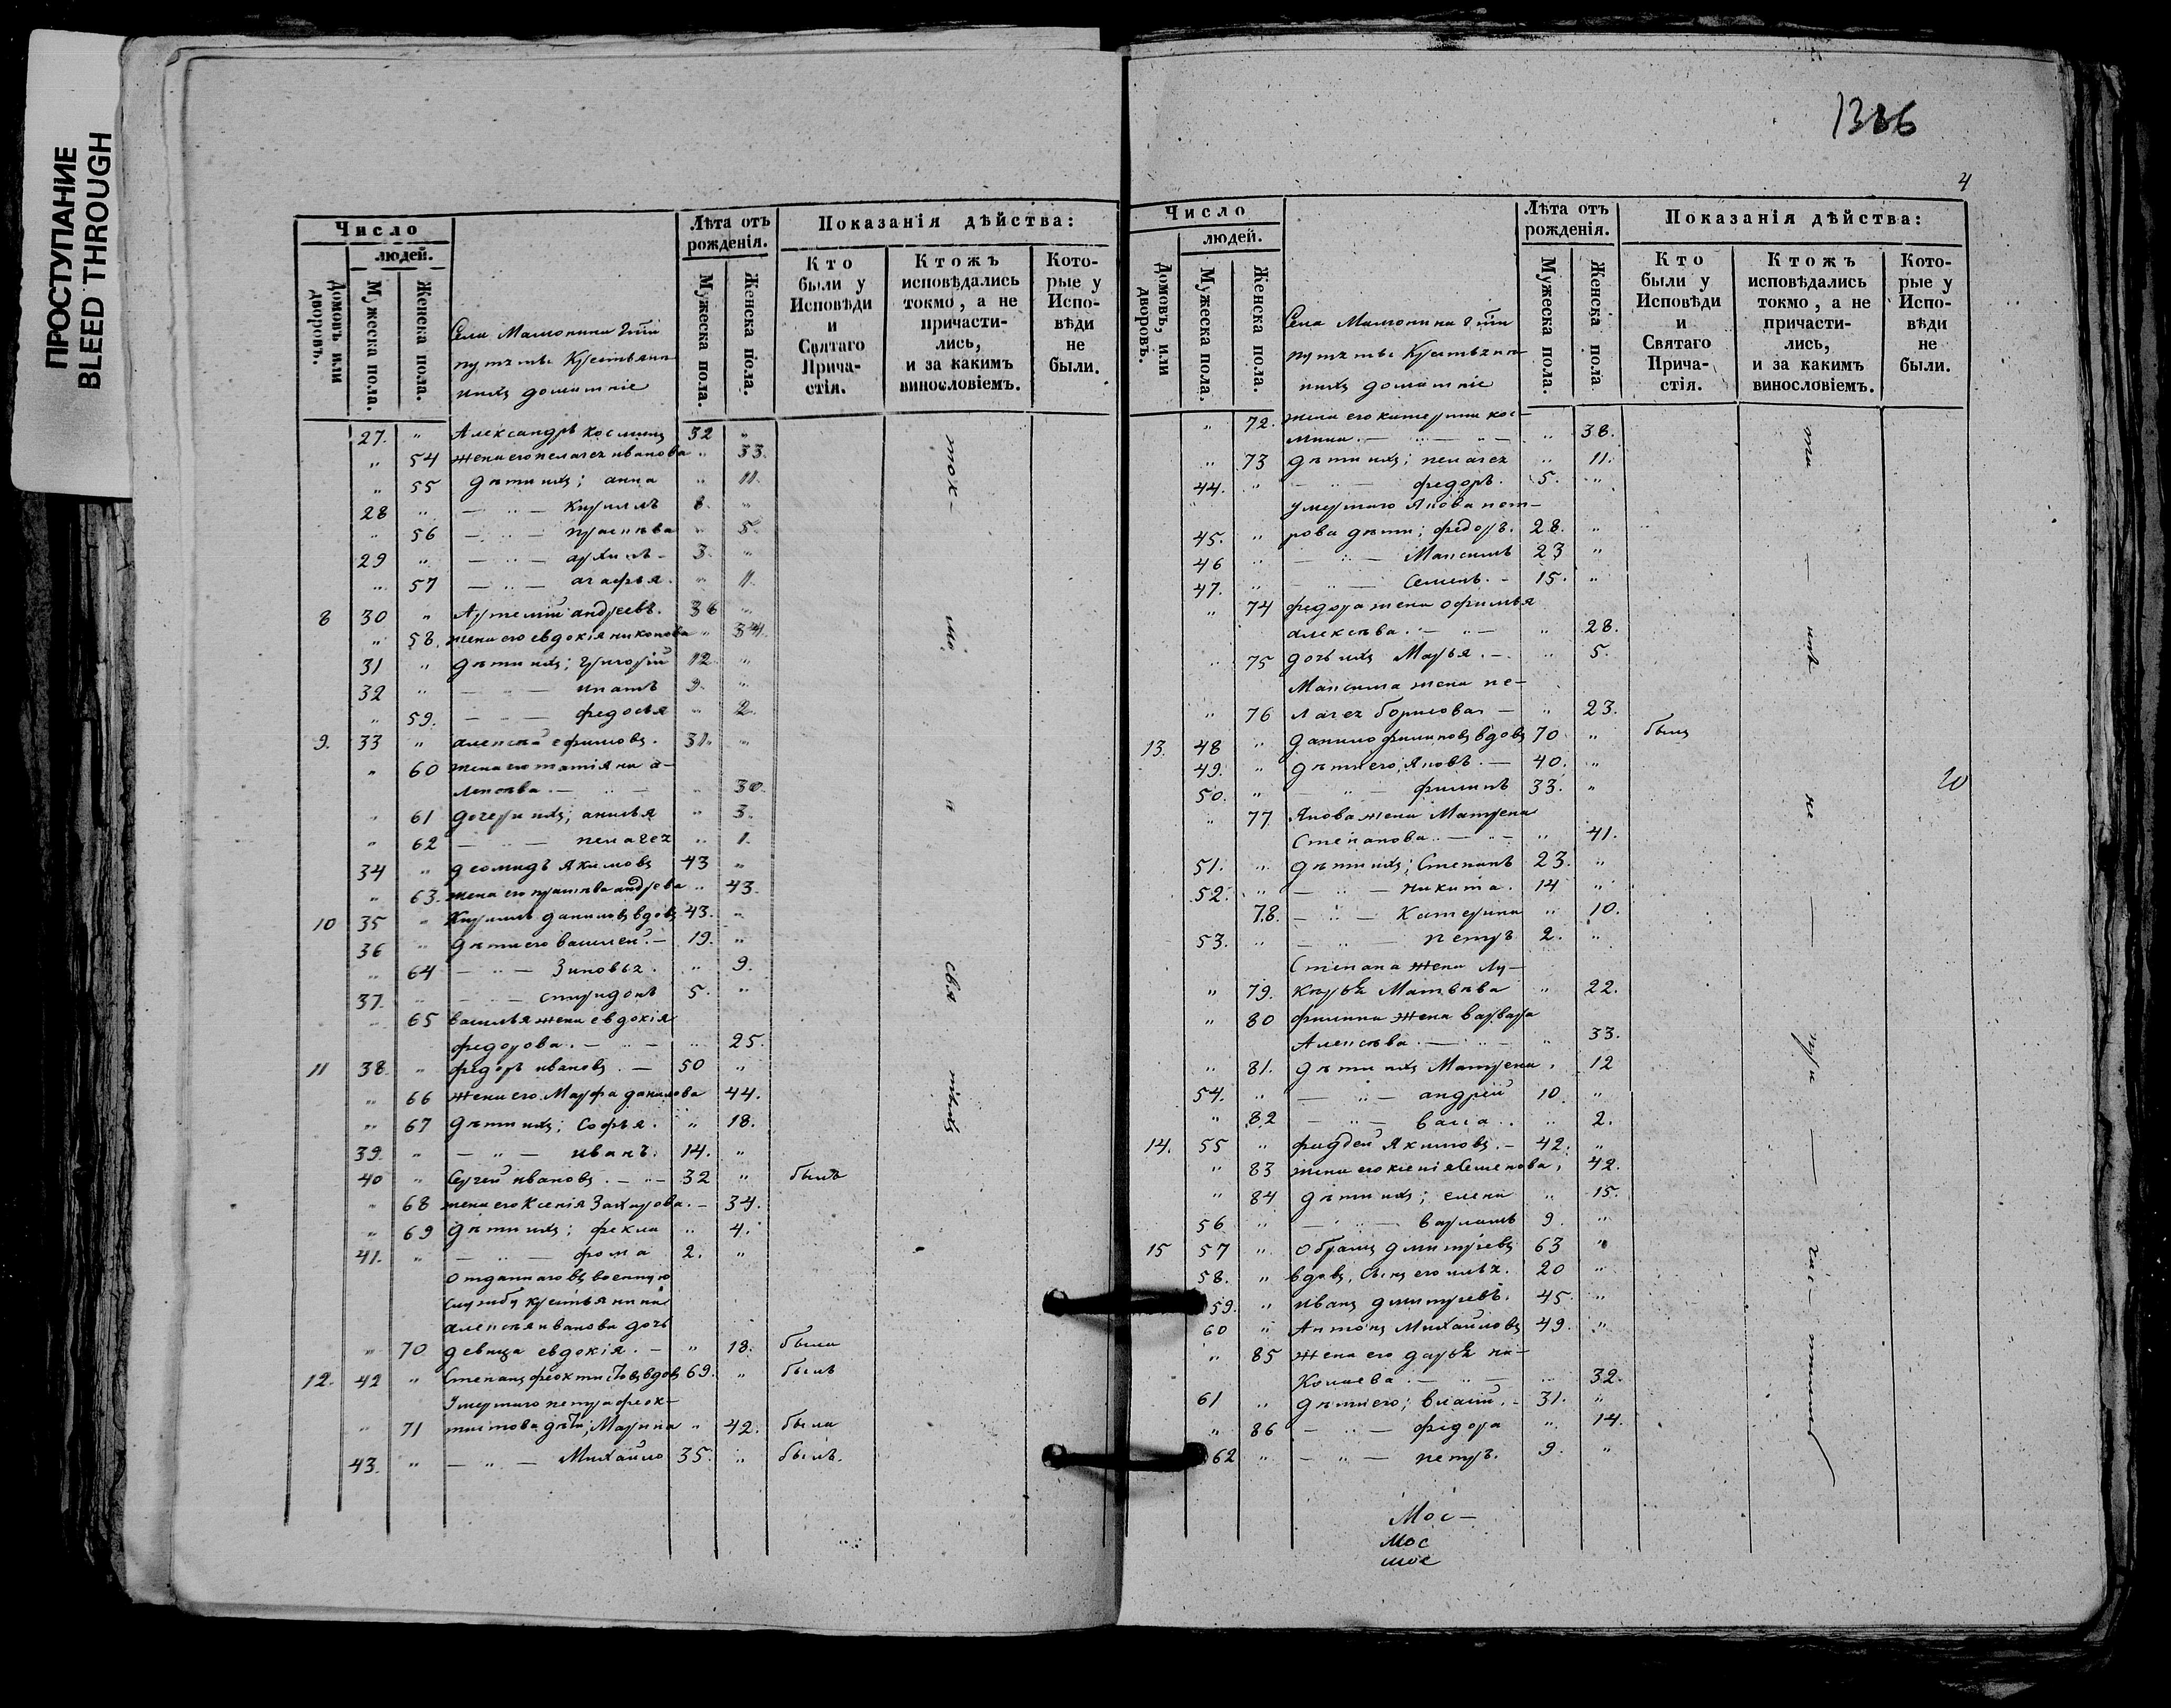 ПРОСТУПАНИЕ
BLEED THROUGH
Число
людей.
Домовъ или дворовъ.
Мужеска пола.
Женска пола.
Лѣта отъ рожденія.
Мужеска пола.
Женска пола.
Показанія дѣйства:
Кто были у Исповѣди и Святаго Причастія.
Ктожъ исповѣдались токмо, а не причастились, и за какимъ винословіемъ.
Которые у Исповѣди не были.
Села
домашніе
27. " Александръ Космин 32 "
" 54 жена его пелагея иванова " 33.
" 55 дѣти ихъ; анна " 11.
28 " — " — Кириллъ 8. "
" 56 — " — 5.
29 " — " — архипъ - 3. "
" 57 — " — агафья. " 11.
8 30 " Артемій андреевъ. 36 "
" 58. жена его евдокія никонова " 34.
31 " дѣти ихъ; григорій 12. "
32 " — " — игнатъ 9. "
" 59. — " — федосья " 2.
9. 33 " алексѣй ефимовъ. 31. "
" 60 жена его татіяна а-
лексѣва. — " — " 30.
" 61 дочери ихъ; акилья " 3.
" 62 — " — пелагея " 1.
34 " деомидъ Якимовъ 43 "
" 63. жена его андрева " 43.
10 35 " Кириллъ даниловъ вдовъ 43. "
36 " дѣти его василей. — 19. "
" 64 — " — Зиновья. " 9.
37. " — " — спиридонъ 5. "
" 65 василья жена евдокія
федорова. — " — " 25.
11 38. " федоръ ивановъ. — 50 "
" 66 жена его Марфа данилова 44.
" 67 дѣти ихъ; Софья. " 18.
39. " — " — иванъ. 14. "
40 " Сергей ивановъ. — " — 32 " былъ
" 68 жена его Ксенія Захарова. — 34.
" 69 дѣти ихъ; фекла " 4.
41. " — " — фома 2. "
Отданнаго въ военную
службу крестьянина
алексѣя иванова дочь
" 70 девица евдокія. — " 18. была
12. 42 " Степанъ феоктистовъ вдовъ 69. " былъ
Умершаго петра феок-
" 71 тистова дѣти; Марина " 42. была
43. " — " — Михайло 35. " былъ.
1386
4
Число
людей.
Домовъ, или дворовъ.
Мужеска пола.
Женска пола.
Лѣта отъ рожденія.
Мужеска пола.
Женска пола
Показанія дѣйства:
Кто были у Исповѣди и Святаго Причастія.
Ктожъ исповѣдались токмо, а не причастились, и за какимъ винословіемъ.
Которые у Исповѣди не были.
Села
домашніе
" 72. жена его катерина кос-
мина. — " — " 38.
" 73 дѣти ихъ; пелагея " 11.
44. " — " — федоръ. 5. "
умершаго Якова пет-
45. " рова дѣти; федоръ. 28. "
46 " — " — Максимъ 23 "
47. " — " — Семенъ. - 15. "
" 74 федора жена офимья
алексѣва. — " — " 28.
" 75 дочь ихъ Марья. — " 5.
Максима жена пе-
" 76 лагея борисова — " 23.
13. 48 " данило филиповъ вдовъ 70 " былъ
49. " дѣти его; Яковъ. — 40. "
50. " — " — филипъ 33. "
" 77 Якова жена Матрена
Степанова. — " — " 41.
51. " дѣти ихъ; Степанъ 23. "
52. " — " — никита. 14 "
78. — " — Катерина " 10.
53. " — " — петръ 2. "
Степана жена Лу-
" 79. керья Матвѣва " 22.
" 80 филипа жена варвара
Алексѣва. — " — " 33.
" 81. дѣти ихъ Матрена. 12
54. " — " — андрей 10. "
" 82 — " — васса.. " 2.
14. 55 " фадей Якимовъ. — 42. "
" 83 жена его ксенія Семенова, 42.
" 84 дѣти ихъ; елена " 15.
56 " — " — варламъ 9. "
15 57 " Обрамъ дмитріевъ 63 "
58. " вдовъ, сынъ его илья. 20 "
59. " иванъ дмитріевъ. 45. "
60 " Антонъ Михайловъ 49. "
" 85 жена его дарья ни-
Колаева. — " — " 32.
61 " дѣти его; власій. — 31. "
" 86 — " — федора " 14.
62 " — " — петръ. 9. "
Мос-
Мос
мос